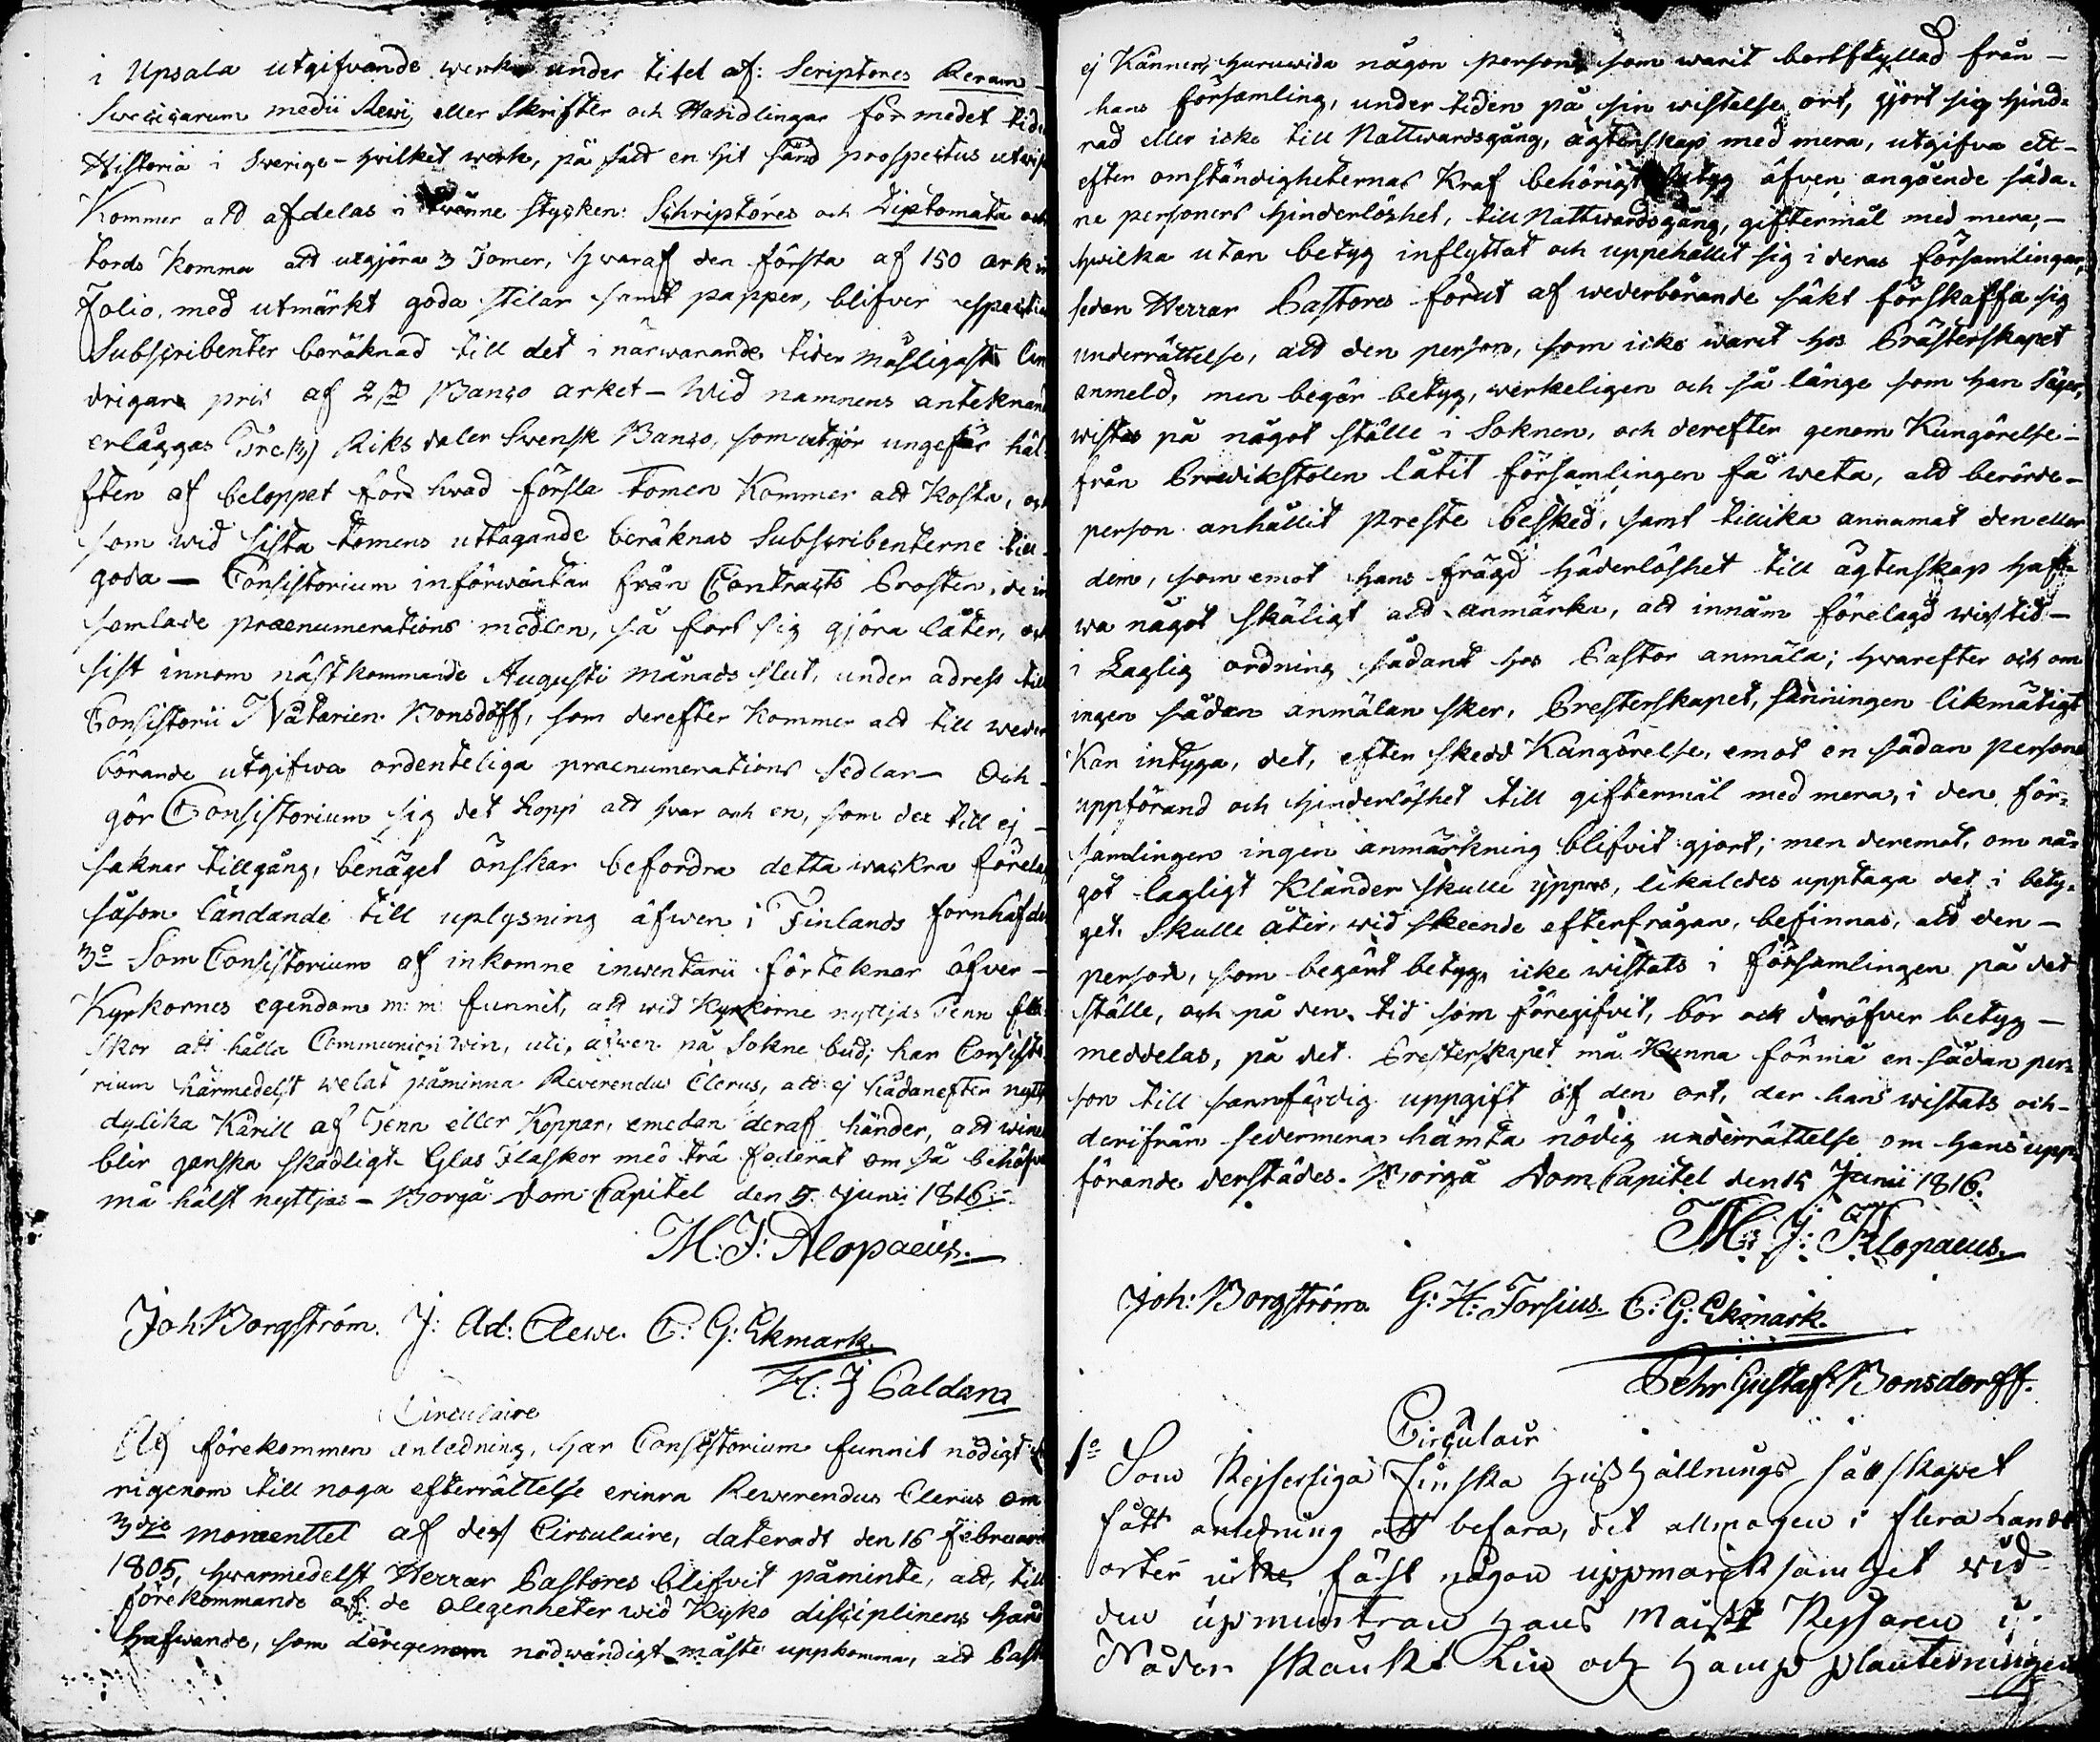 i Upsala utgifvande werk under titel af: Scriptores Rerum
Svecicarum medii Aevi, eller Skrifter och Handlingar för medel tid.
Historia i Sverige - hvilket werk, på fatt en hit sänd prospectus utwis
Kommer att afdelas i tvänne stycken: Schriptores och Diplomata och
tords komma att utgjöra 3 Tomer, hwaraf den första af 150 ark in
Folio, med utmärkt goda stilar samt papper, blifver respective
Subscribenter beräknad till det i närwarande tider måsligaste lin
drigare pris af 2 Banco arket - Wid namnens anteknand
erläggas Tre (3) Riksdaler Swensk Banco, som utgör ungefär häl
ften af beloppet för hvad första tomen Kommer att Kosta, och
som wid sista tomens uttagande beräknas Subscribenterne till
goda - Consistorium införwäntar från Contracts Prosten, de in
samlade praenumerations medlen, så fort sig gjöra låter, och
sist innom nästkommande Augusti Månads slut, under adress till
Consistorii Notarien Bonsdorff, som derefter kommer att till weder
börande utgifwa ordenteliga praenumerations Sedlar - Och -
gör Consistorium sig det hopp att hvar och en, som der till ej -
saknar tillgång, benäget önskar befordra detta wackra företag
såsom ländande till uplysning äfwen i Finlands fornhäfder
3o Som Consistorium af inkomne inwentarii förteknar öfver -
Kyrkornes egendom m: m: funnit, att wid Kyrkorne nyttjas Tenn fla
skor att hålla Communion win, uti, äfwen på Sokne bud; har Consisto
rium härmedelst welat påminna Reverendus Clerus, att ej hädanefter nyttj
dylika Kärill af Tenn eller Koppar, emedan deraf händer, att winet
blir ganska skadligt. Glas Flaskor med trä foderat om så behöfwes
må hälst nyttjas - Borgå Dom Capitel den 5. Junii 1816.
M: J: Alopaeus.
Joh: Borgström. J: Ad: Clewe. C: G: Ekmark.
H: J Caldén
Circulaire
Af förekommen anledning, har Consistorium funnit nödigt
rigenom till noga efterrättelse erinra Rewerendus Clerus om
3dje momenttet af dess Circulaire, dateradt den 16 Februarii
1805, hwarmedelst Herrar Pastores blifvit påminte, att, till
förekommande af de olegenheter wid Kyrko disciplinens hand
hafwande, som deregenom nödwändigt måste uppkomma, att Past
ej Känner, huruwida någon person, som warit bortflyttad från -
hans församling, under tiden på sin wistelse ort, gjort sig hind=
rad eller icke till Nattwardsgång, ägtenskap med mera, utgifva ett -
efter omständigheternas Kraf behörigt betyg äfven angående såda=
ne personers hinderlöshet, till Nattwardsgång, giftermål med mera, -
hwilka utan betyg inflyttat och uppehållit sig i deras församlingar,
sedan Herrar Pastores förut af wederbörande säkt förskaffa sig
underrättelse, att den person, som icke warit hos Prästerskapet
anmeld, men begär betyg, werkeligen och så länge som han säger,
wistas på något ställe i Soknen, och derefter genom Kungörelse -
från Predikstolen låtit församlingen få weta, att berörde -
person anhållit preste besked, samt tillika anmanat den eller
dem, som emot hans frägd håderlöshet till ägtenskap haf=
wa något skäligt att anmärka, att innom förelagd wiss tid -
i Laglig ordning sådant hos Pastor anmäla; hwarefter och om
ingen sådan anmälan sker, Presterskapet, sanningen likmätigt
Kan intyga, det, efter skedd Kungörelse, emot en sådan persons
uppförand och hinderlöshet till giftermål med mera, i den för=
samlingen ingen anmärkning blifvit gjort; men deremot, om nå=
got lagligt Klander skulle yppas, likaledes upptaga det i bety=
get. Skulle åter, wid skeende efterfrågan, befinnas, att den -
person, som begärt betyg, icke wistats i församlingen på det
ställe, och på den tid som föregifvit, bör ock deröfver betyg -
meddelas, på det Presterskapet må Kunna förmå en sådan per=
son till sannfärdig uppgift af den ort, der han wistats och -
derifrån sedermera hämta nödig underrättelse om hans upp=
förande derstädes. Borgå Dom Capitel den 15 Junii 1816.
M: J: Alopaeus.
Joh: Borgström. G: H: Forsius. C: G: Ekmark.
Pehr Gustaf Bonsdorff.
Circulair
1o Som Kejserliga Finska Hushållnings Sällskapet
fått anledning att befara, det allmogen i flera Lands
orter icke fäst någon uppmärksamhet wid
den upmuntran Hans Maijst Kejsaren i
Nåder skänkt Lin och Hamp planteringen